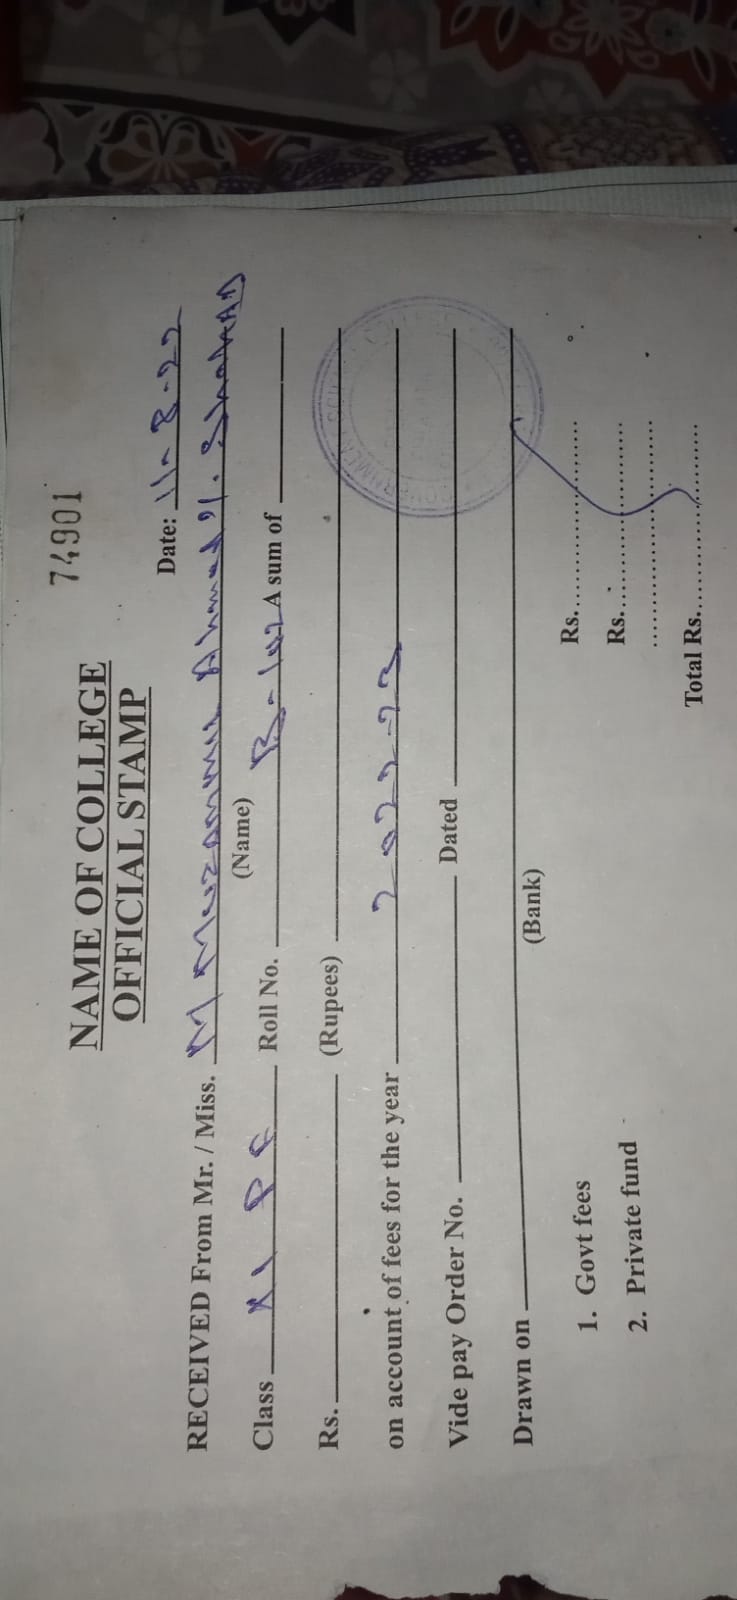 74901
NAME OF COLLEGE
OFFICIAL STAMP
Date: 11-8-22
RECEIVED From Mr. / Miss. M Muzammil Ahmed
(Name)
Class XI PE Roll No. B-142 A sum of
Rs. (Rupees)
on account of fees for the year 2022-23
Vide pay Order No. Dated
Drawn on
(Bank)
1. Govt fees Rs.
2. Private fund Rs.
Total Rs.
GOVERNMENT COLLEGE